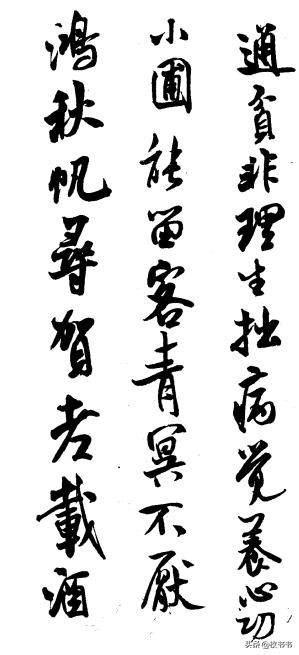 通貧非理生拙病覺養心功
小圃能留客青冥不厭
鴻秋帆尋賀老載酒
头条@牧书书